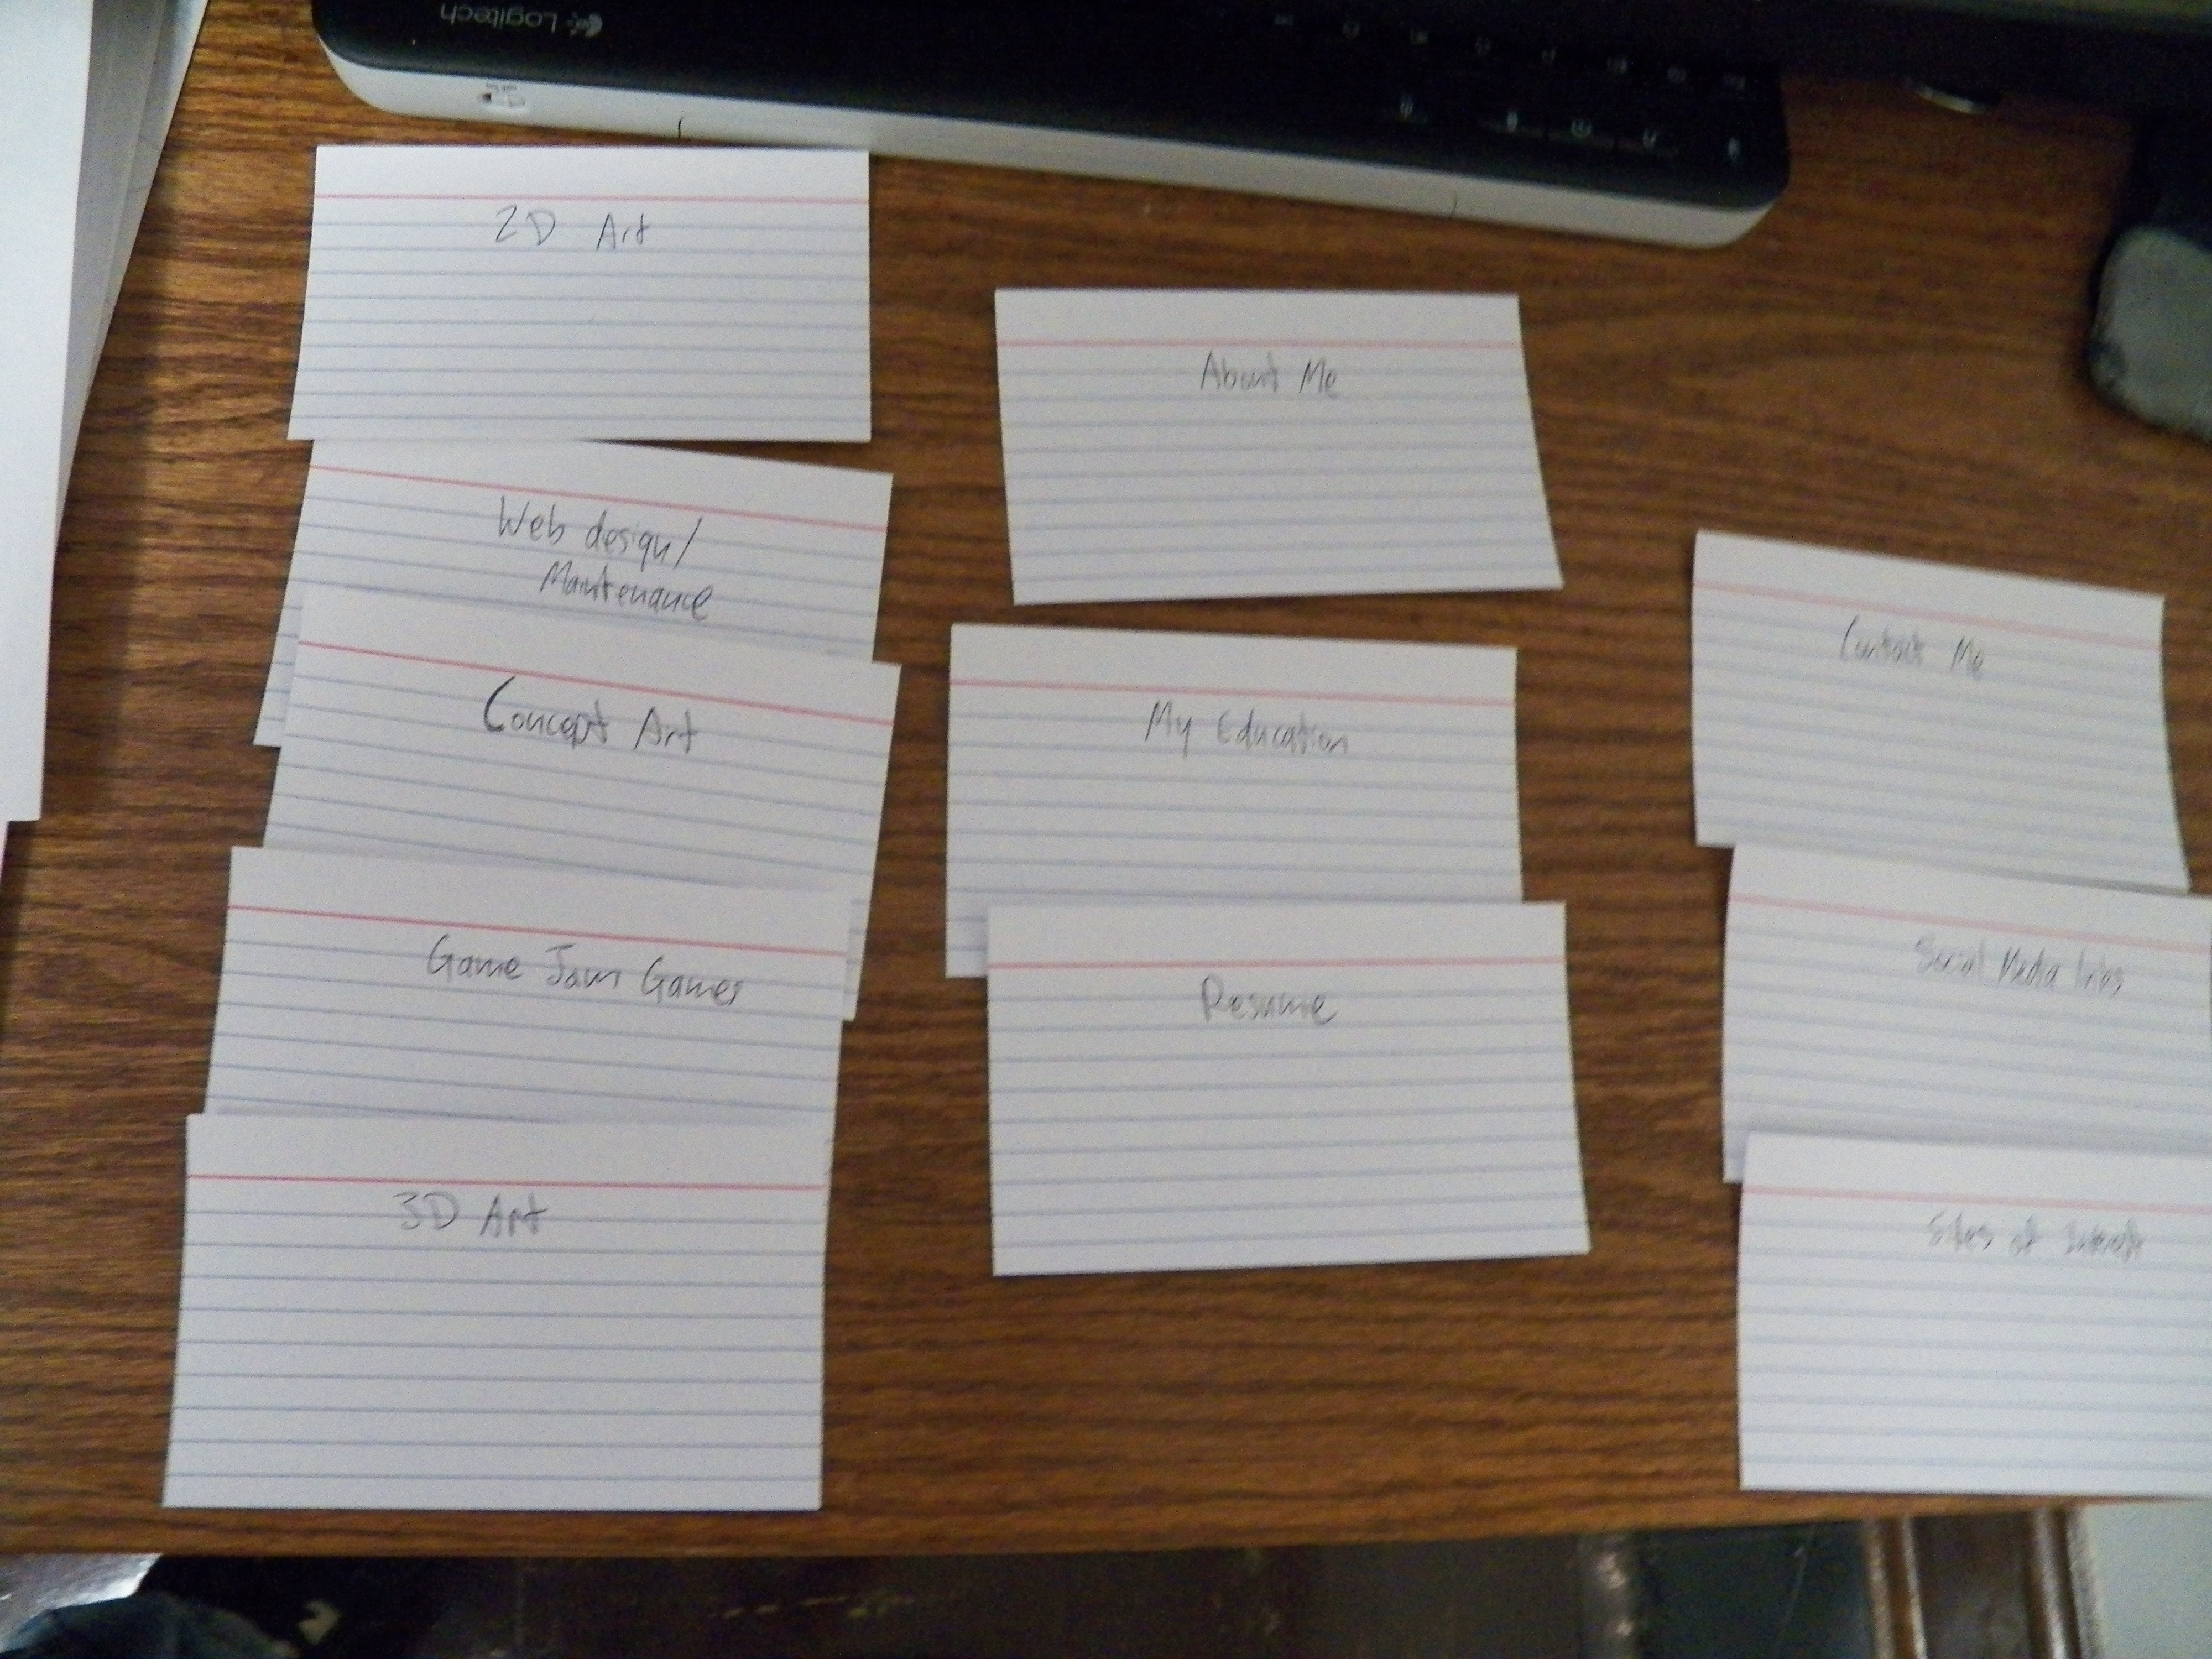 Logitech
2D Art
Web design/
Maintenance
Concept Art
Game Jam Games
3D Art
About Me
My Education
Resume
Contact Me
Social Media
Sites of Interest